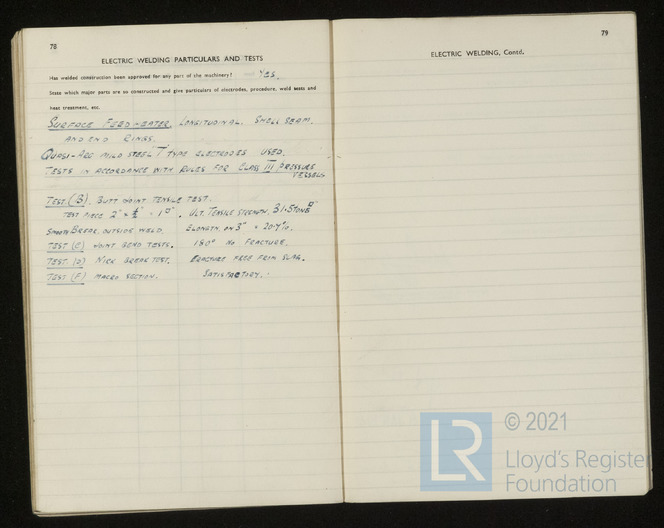 78
ELECTRIC WELDING PARTICULARS AND TESTS
Has welded construction been approved for any part of the machinery? YES.
State which major parts are so constructed and give particulars of electrodes, procedure, weld tests and
heat treatment, etc.
SURFACE FEED HEATER, LONGITUDINAL. SHELL SEAM.
AND END RINGS.
QUASI-ARC MILD STEEL T TYPE ELECTRODES USED.
TESTS IN ACCORDANCE WITH RULES FOR CLASS III PRESSURE
VESSELS
TEST (B). BUTT JOINT TENSILE TEST.
TEST PIECE 2" x ½" = 1□". ULT. TENSILE STRENGTH. 31.5 TONS□"
SMOOTH BREAK. OUTSIDE WELD. ELONGTN. ON 3" = 20.7%.
TEST (C) JOINT BEND TESTS. 180° NO FRACTURE.
TEST (D) NICK BREAK TEST. FRACTURE FREE FROM SLAG.
TEST (F) MACRO SECTION. SATISFACTORY.
79
ELECTRIC WELDING, Contd.
LR
© 2021
Lloyd's Register
Foundation